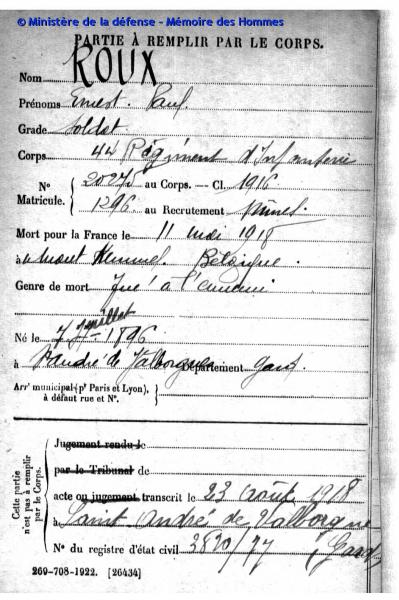 © Ministère de la défense - Mémoire des Hommes
PARTIE À REMPLIR PAR LE CORPS.
Nom ROUX
Prénoms Ernest Paul
Grade Soldat
Corps 44 Régiment d'Infanterie
N° Matricule. 20275 au Corps. — Cl. 1916
1296 au Recrutement Nîmes
Mort pour la France le 11 mai 1918
à Mont Kemmel Belgique.
Genre de mort Tué à l'ennemi
Né le 7 Juillet 1896
à St André de Valborgne Département Gard.
Arrt municipal (pr Paris et Lyon), à défaut rue et N°.
Cette partie n'est pas à remplir par le Corps.
Jugement rendu le
par le Tribunal de
acte ou jugement transcrit le 23 Août 1918
à Saint André de Valborgne
N° du registre d'état civil 3820/77 (Gard)
269-708-1922. [26434]